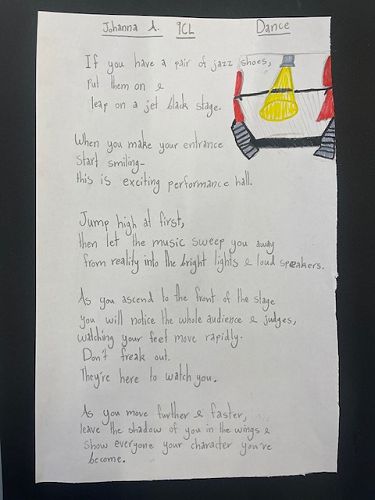 Johanna A. 9CL Dance
If you have a pair of jazz shoes,
Put them on &
leap on a jet black stage.
When you make your entrance
Start smiling-
this is exciting performance hall.
Jump high at first,
then let the music sweep you away
from reality into the bright lights & loud speakers.
As you ascend to the front of the stage
you will notice the whole audience & judges,
watching your feet move rapidly.
Don't freak out.
They're here to watch you.
As you move further & faster,
leave the shadow of you in the wings &
show everyone your character you've
become.